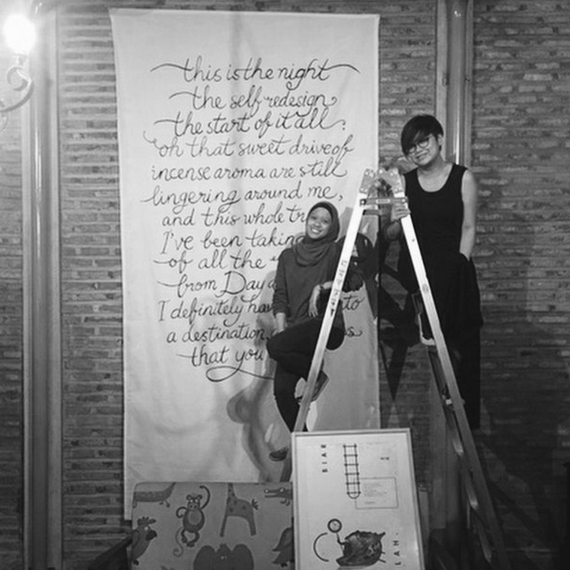 this is the night
the self redesign
the start of it all
oh that sweet drive of
incense aroma are still
lingering around me,
and this whole
I've been
of all the
from
I definitely
a destination
that you
BIAR
LAH.